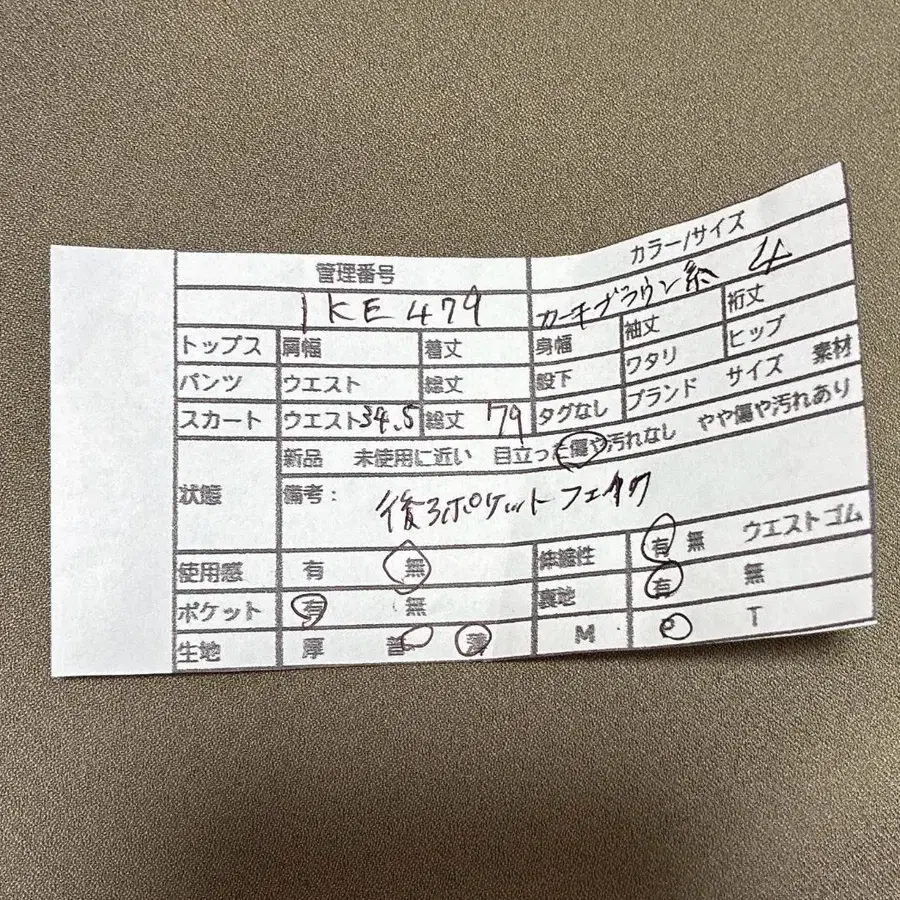 管理番号 カラー/サイズ
IKE479 カーキブラウン系 4
トップス 肩幅 着丈 身幅 袖丈 裄丈
パンツ ウエスト 総丈 股下 ワタリ ヒップ
スカート ウエスト34.5 総丈 79 タグなし ブランド サイズ 素材
状態 新品 未使用に近い 目立った傷や汚れなし やや傷や汚れあり
備考: 後ろポケットフェイク
使用感 有 無 伸縮性 有 無 ウエストゴム
ポケット 有 無 裏地 有 無
生地 厚 普 薄 M P T